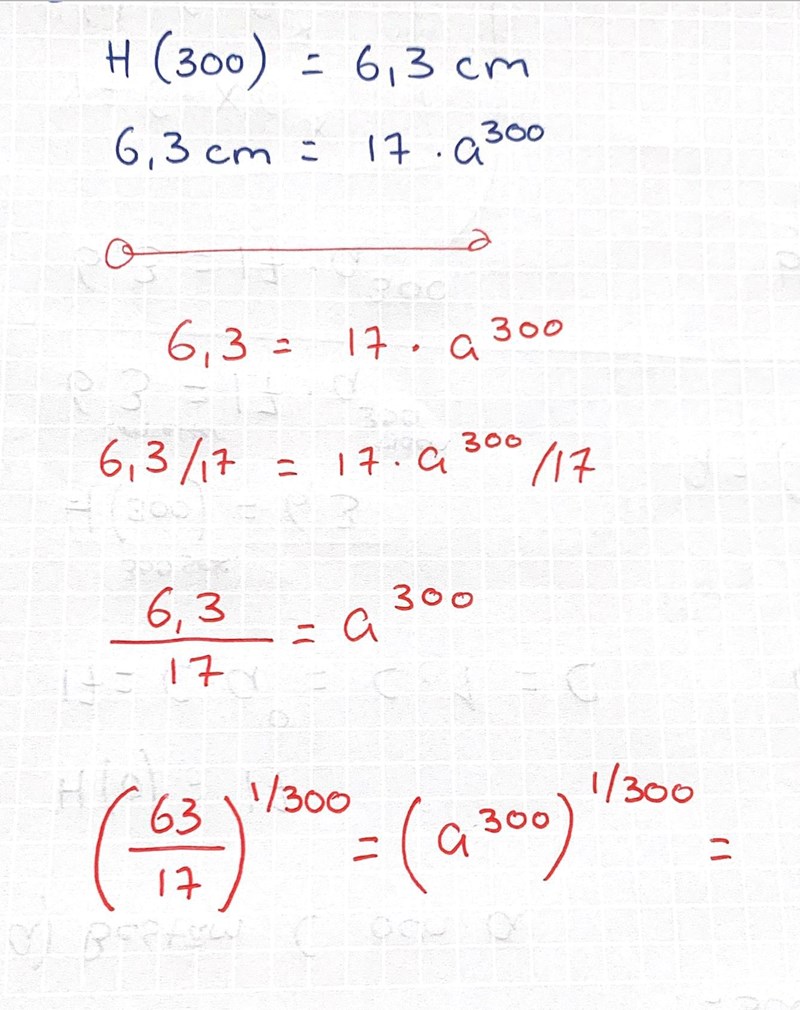 H (300) = 6,3 cm
6,3 cm = 17 · a^300
6,3 = 17 · a^300
6,3/17 = 17 · a^300 /17
6,3/17 = a^300
(63/17)^1/300 = (a^300)^1/300 =